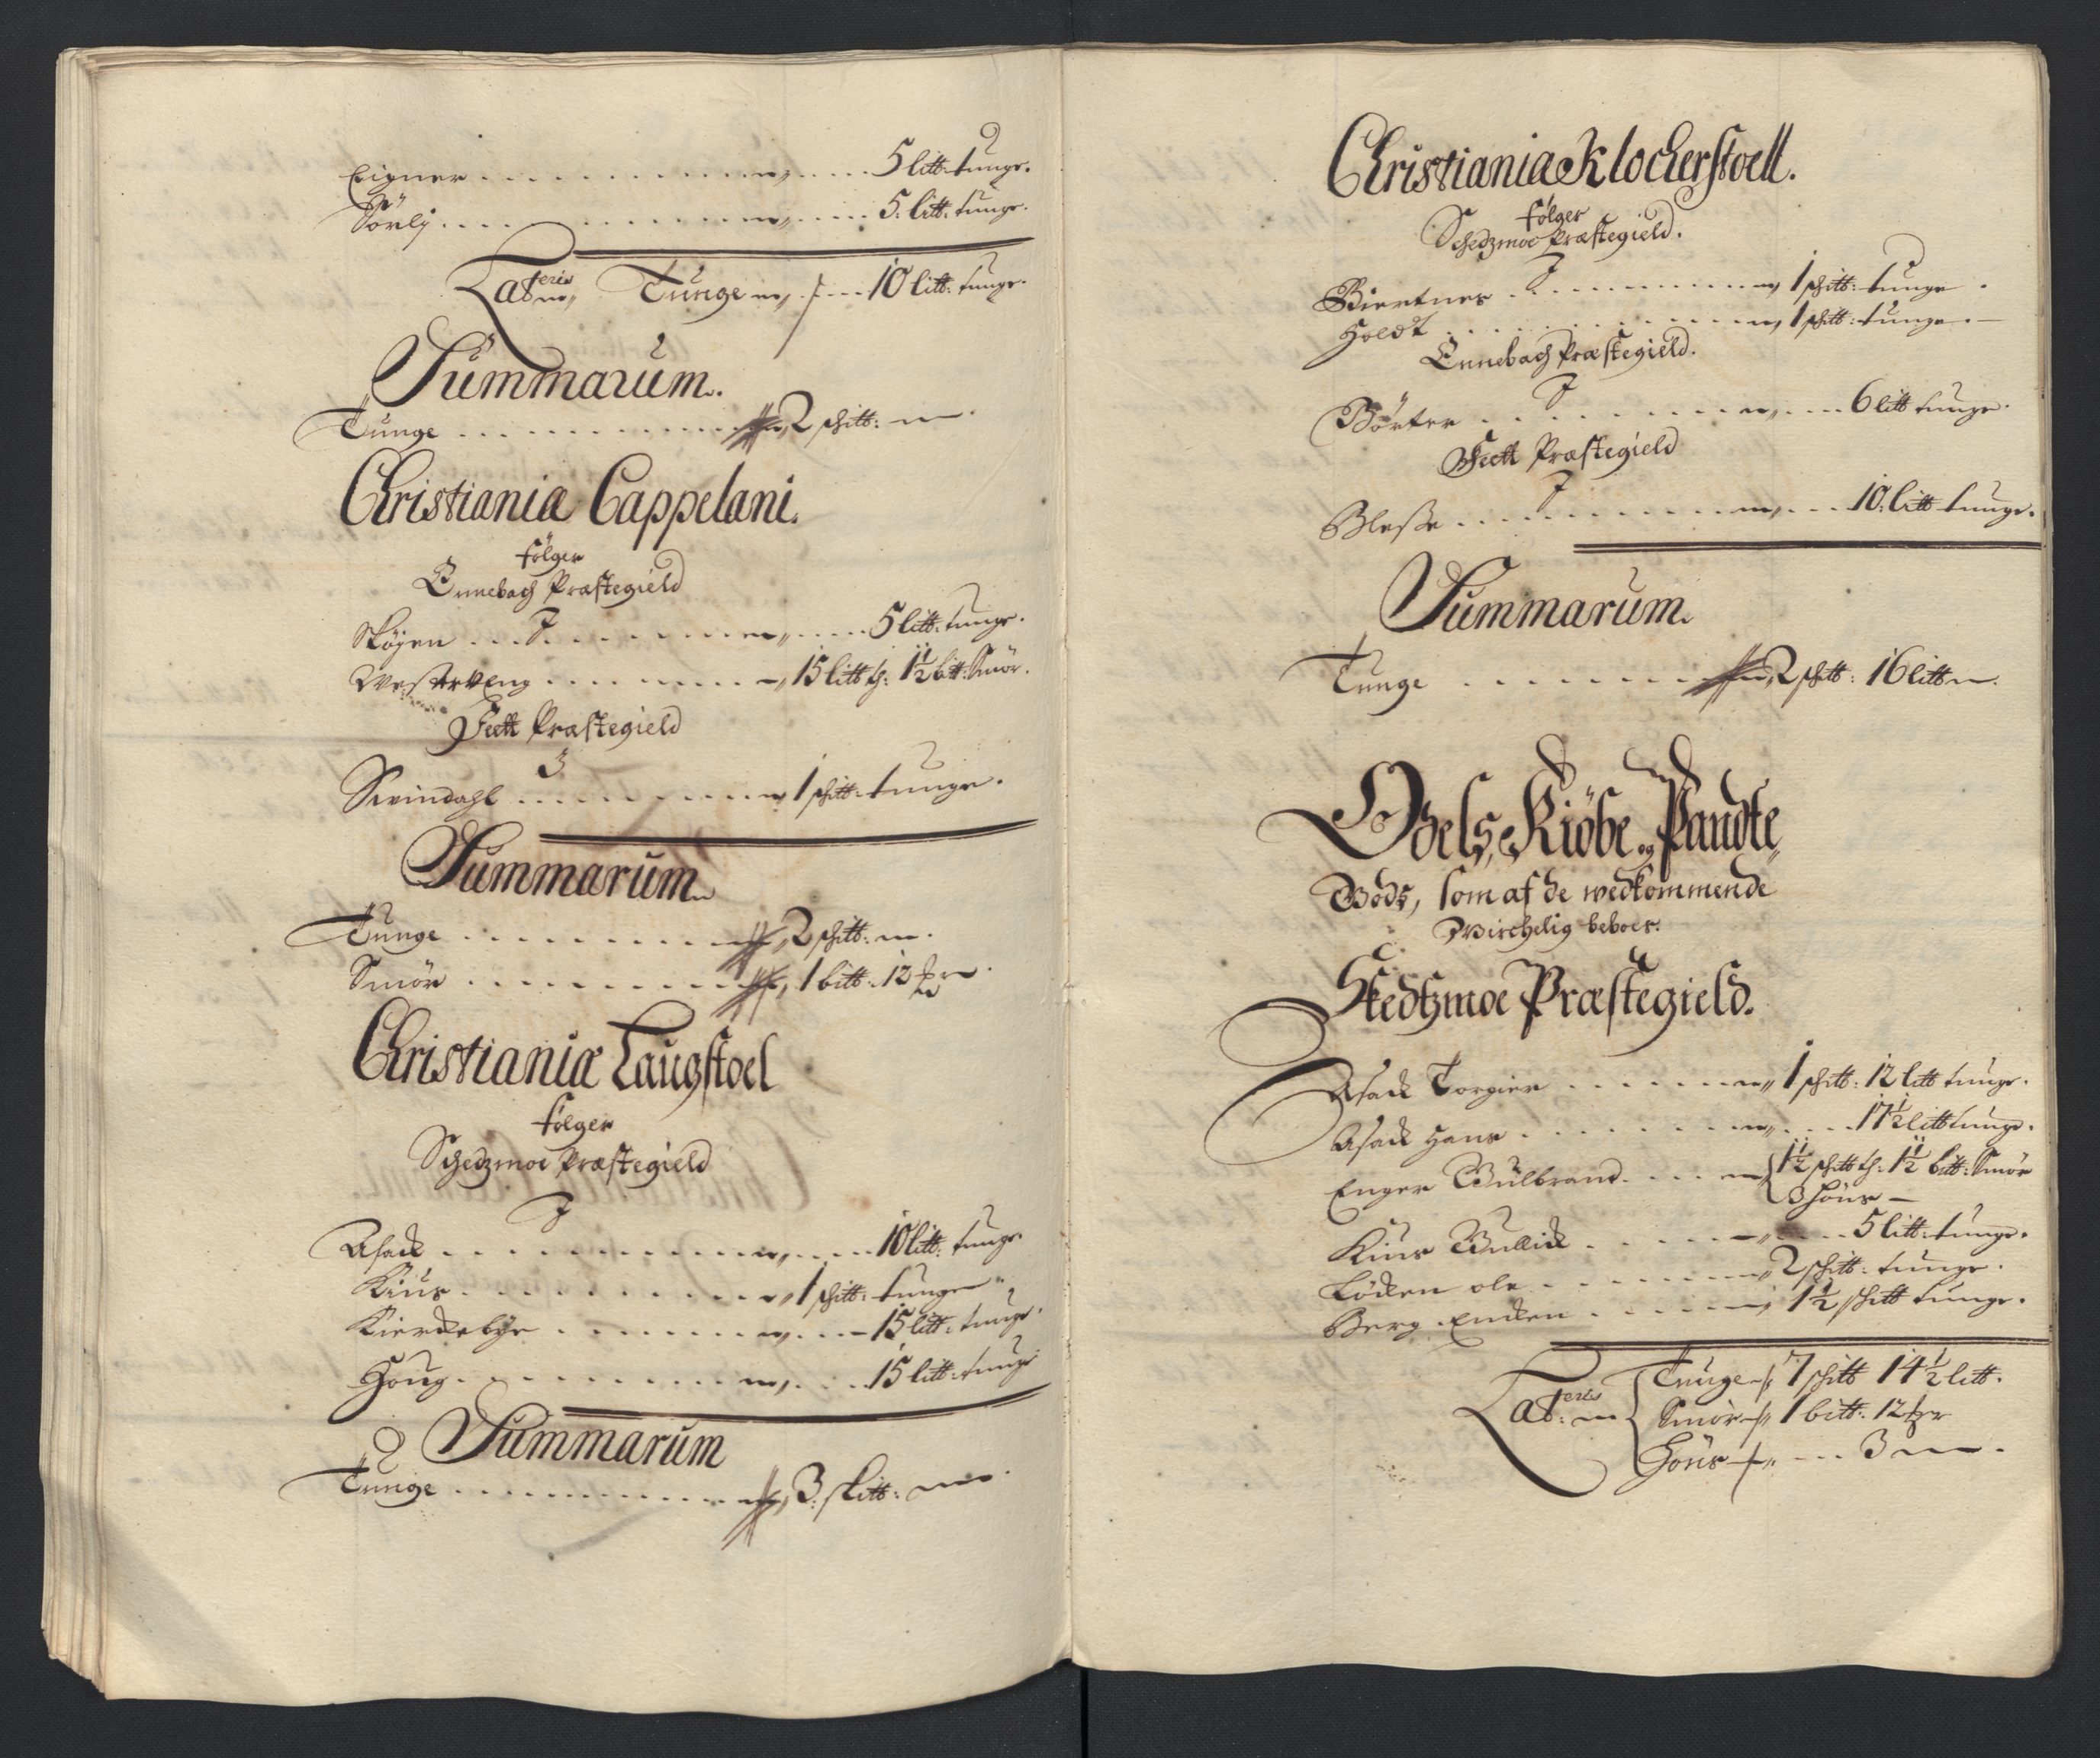 Eigner . . . . . 5 litt: tunge.
Sørlj . . . . . 5. litt: tunge.
Lateris Tunge . . . 10 litt: tunge.
Summarum.
Tunge . . . . . 2 schitt:
Christianiæ Cappelani.
følger
Ennebach Præstegield
Skøyen . . . . . 5 litt: tunge.
Westereng . . . . . 15 litt t: 1½ bitt: Smør.
Feett Præstegield
Svindahl . . . . . 1 schitt: tunge.
Summarum
Tunge . . . . . 2 schitt:
Smør . . . . . 1 bitt: 12
Christianiæ Laugstoel
følger
Schedzmoe Præstegield
Asack . . . . . 10 litt: tunge.
Kius . . . . . 1 schitt: tunge
Kierckebye . . . . . 15 litt: tunge.
Houg . . . . . 15 litt: tunge
Summarum
Tunge . . . . . 3. skitt:
Christianiæ Klockerstoell.
følger
Schedzmoe Præstegield.
Biertnes . . . . . 1 schitt: tunge.
Holdt . . . . . 1 schitt: tunge.
Ennebach Præstegield.
Børter . . . . . 6 litt tunge.
Feett Præstegield
Blesse . . . . . 10. litt tunge.
Summarum.
Tunge . . . . . 2 schitt: 16 litt
Odels, Kiøbe og Pandte
Gods, som af de wedkommende
Wirchelig beboes.
Skedtzmoe Præstegield.
Asack Torgier . . . . . 1 schitt: 12 litt tunge.
Asack Hans . . . . . 17½ litt tunge.
Enger Gulbrand . . . . 1½ schitt t: 1½ bitt: Smør
3 Høns
Kius Gullick . . . . . 5 litt: tunge.
Løcken ole . . . . . 2 schitt: tunge.
Berg . . . . . 1½ schitt tunge.
Lateris Tunge 7 schitt 14½ litt.
Smør 1 bitt: 12
Høns . . . 3